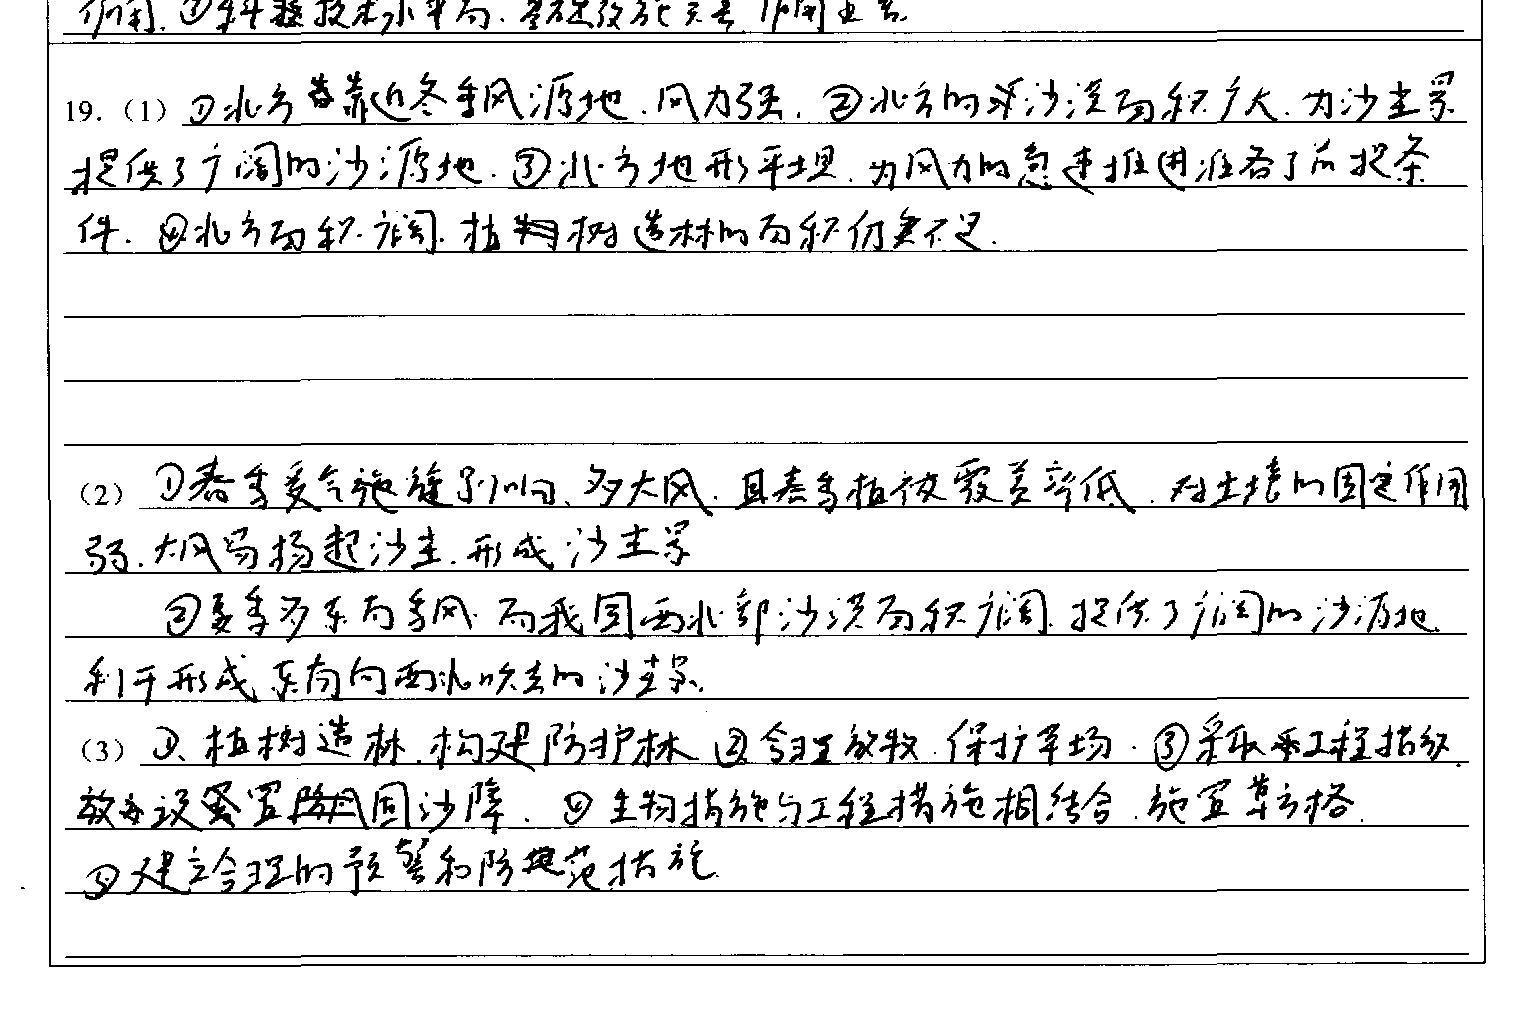 作用.③科技技术水平高.基础设施完善.作用显著
19.（1）①北方靠近冬季风源地.风力强.②北方的沙漠面积广大.为沙尘暴
提供了广阔的沙源地.③北方地形平坦.为风力的急速推进准备了前提条
件.④北方面积广阔.植树造林的面积仍然不足.
（2）①春季受气旋影响、多大风.且春季植被覆盖率低.对土壤的固定作用
弱.大风易扬起沙尘.形成沙尘暴
②夏季多东南季风.而我国西北部沙漠面积广阔.提供了广阔的沙源地
利于形成东南向西北吹去的沙尘暴.
（3）①、植树造林.构建防护林②合理放牧.保护草场.③采取工程措施.
设置固沙障.④生物措施与工程措施相结合.施宜草方格.
⑤建立合理的预警和防范措施.